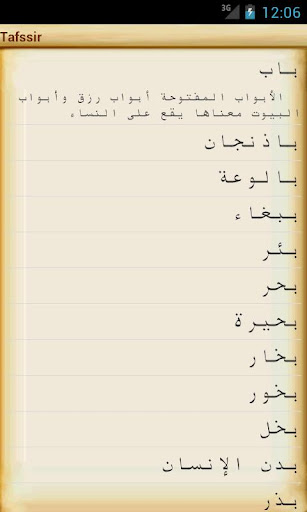 3G 12:06
Tafssir
باب
الأبواب المفتوحة أبواب رزق وأبواب
البيوت معناها يقع على النساء
باذنجان
بالوعة
ببغاء
بئر
بحر
بحيرة
بخار
بخور
بخل
بدن الإنسان
بذر